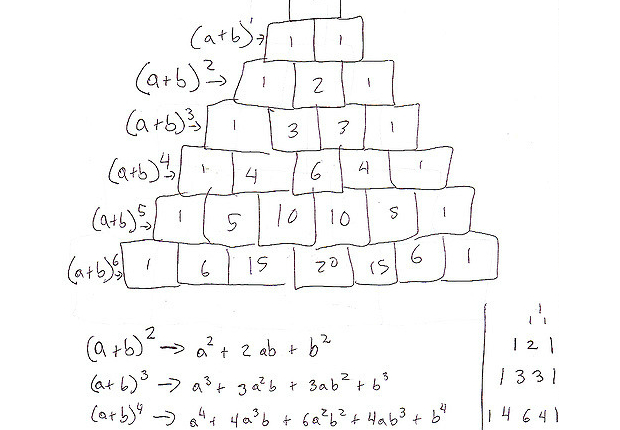 (a+b)¹→ 1 1
(a+b)²→ 1 2 1
(a+b)³→ 1 3 3 1
(a+b)⁴→ 1 4 6 4 1
(a+b)⁵→ 1 5 10 10 5 1
(a+b)⁶→ 1 6 15 20 15 6 1
(a+b)² → a² + 2ab + b²
(a+b)³ → a³ + 3a²b + 3ab² + b³
(a+b)⁴ → a⁴ + 4a³b + 6a²b² + 4ab³ + b⁴
1
1 1
1 2 1
1 3 3 1
1 4 6 4 1